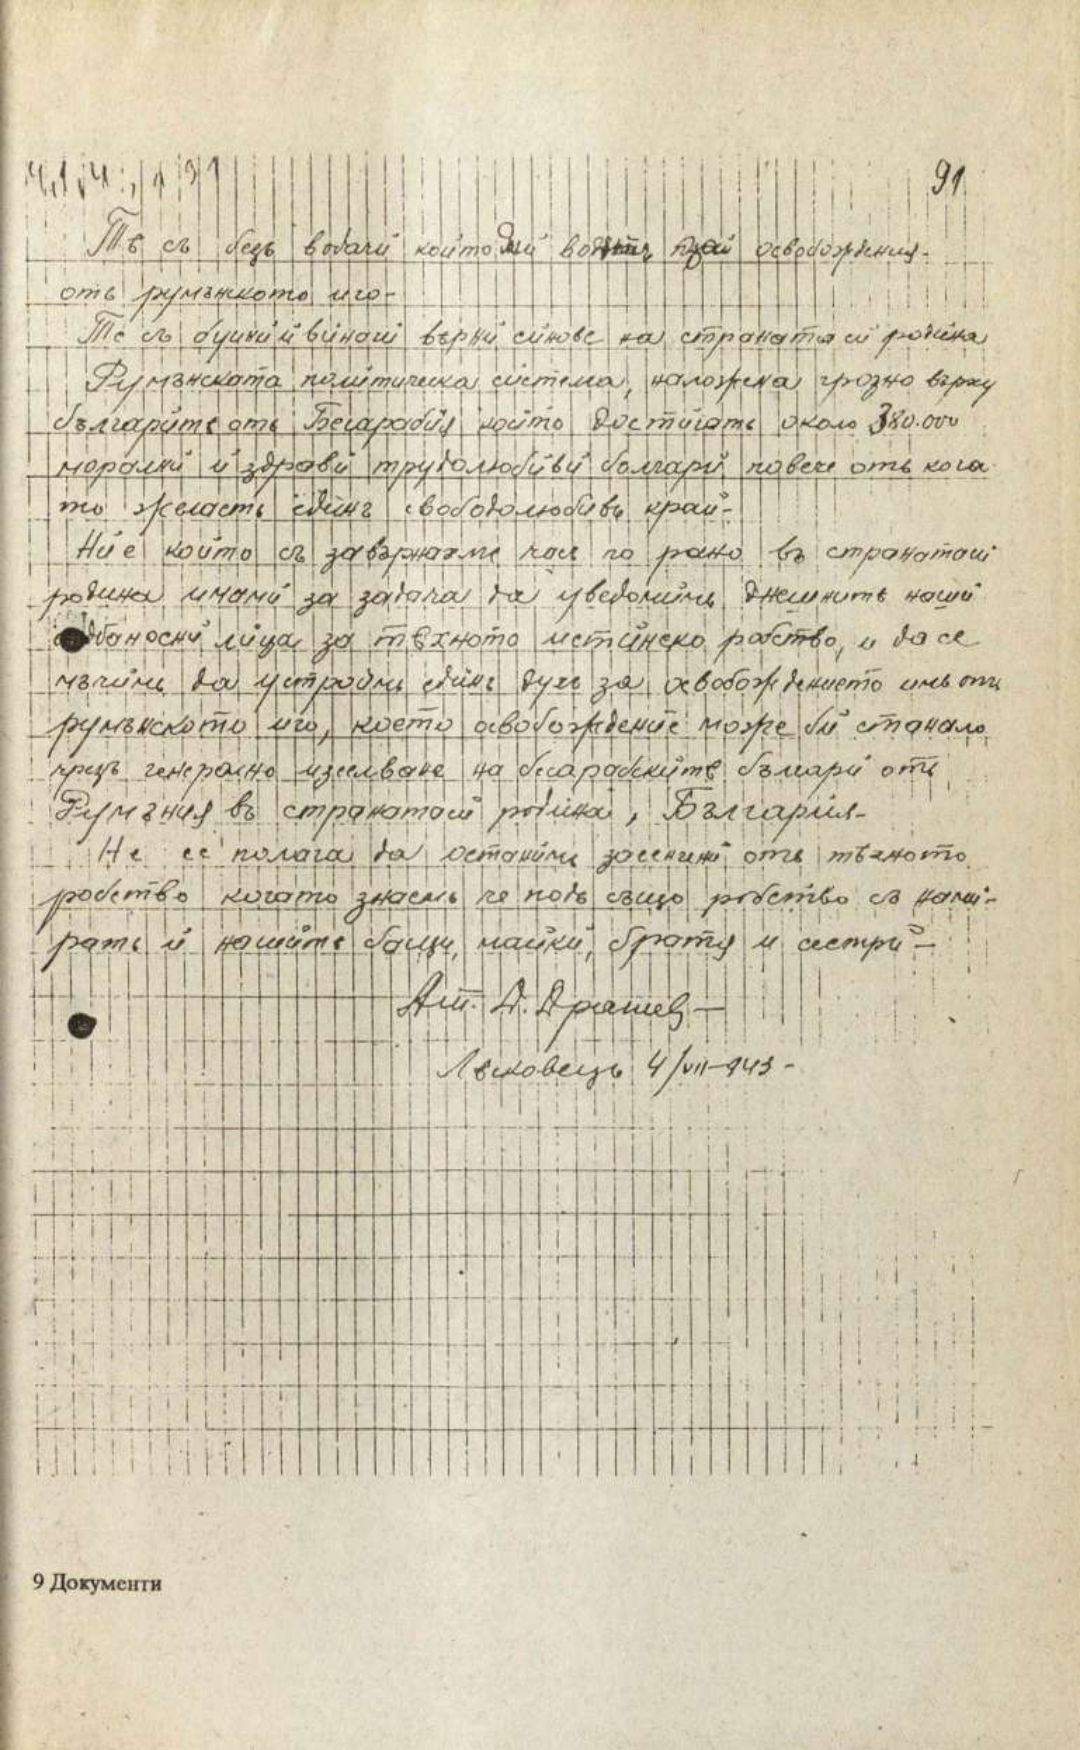 91
Тѣ сѫ безъ водачи който да ги освобождения
отъ румънското иго-
Те съ буйни и винаги верни синове на странатаси родина
Румънската политическа система, наложена грозно върху
българитѣ отъ Бесарабия който достигатъ около 380.000
морални и здрави трудолюбиви болгари повече отъ кога
то желаятъ единъ свободолюбивъ край-
Ние който съ завърнахме час по рано въ странатаси
родина имами за задача да уведомимъ днешнитѣ наши
лица за тѣхното истинско робство, и да се
мъчимъ да устроймъ единъ духъ за освобождението имъ отъ
румънското иго, което освобождение може би станало
чрезъ генерално изселване на бесарабскитѣ българи отъ
Румъния въ странатаси родина, България-
Не се полага да останимъ засегнати отъ тѣхното
робство когато знаемъ че подъ също робство съ нами-
ратъ и нашитѣ бащи, майки, братя и сестри-
Ат. Д. Драгнев-
Лѣсковецъ 4/VII-943-
9 Документи